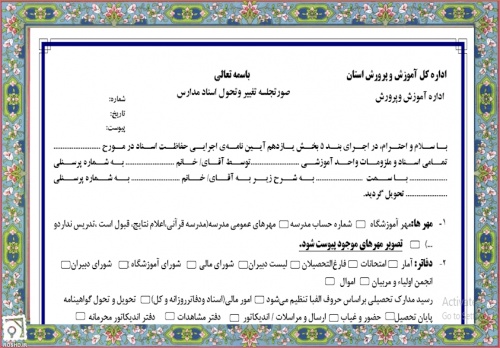 باسمه تعالی
اداره کل آموزش و پرورش استان
صورتجلسه تغییر و تحول اسناد مدارس
اداره آموزش و پرورش
شماره:
تاریخ:
پیوست:
با سلام و احترام، در اجرای بند ۵ بخش یازدهم آیین نامه‌ی اجرایی حفاظت اسناد در مورخ ....................
تمامی اسناد و ملزومات واحد آموزشی .................... توسط آقای/ خانم .................... به شماره پرسنلی
.................... با سمت .................... به شرح زیر به آقای/ خانم .................... به شماره پرسنلی
.................... تحویل گردید.
۱- مهر ها: مهر آموزشگاه □ شماره حساب مدرسه □ مهرهای عمومی مدرسه(مدرسه قرآنی،اعلام نتایج، قبول است ،تدریس ندارد و
...) □ تصویر مهرهای موجود پیوست شود.
۲- دفاتر: آمار □ امتحانات □ فارغ‌التحصیلان □ لیست دبیران □ شورای مالی □ شورای آموزشگاه □ شورای دبیران □
انجمن اولیاء و مربیان □ اموال □
رسید مدارک تحصیلی براساس حروف الفبا تنظیم می‌شود □ امور مالی(اسناد ودفاترروزانه و کل) □ تحویل و تحول گواهینامه
پایان تحصیل □ حضور و غیاب □ ارسال و مراسلات / اندیکاتور □ دفتر مشاهدات □ دفتر اندیکاتور محرمانه □
Activate
Go to Set
ROSHD.IR